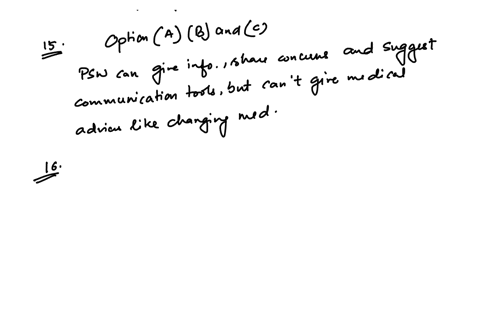 15. Option (A) (B) and (C)
PSW can give info., share concerns and suggest
communication tools, but can't give medical
advice like changing med.
16.